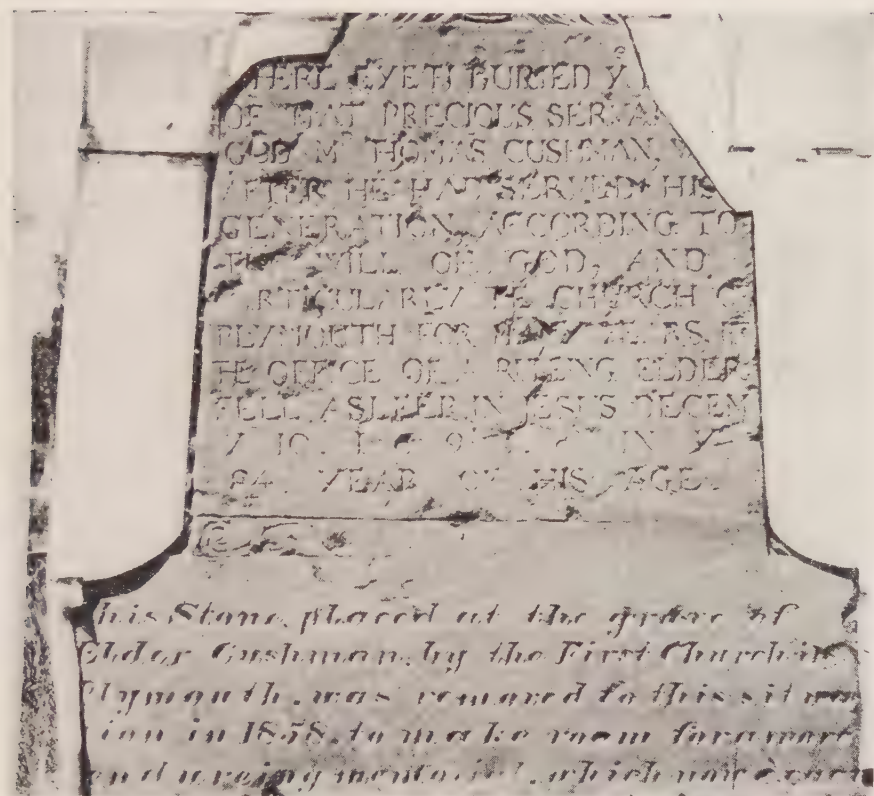 HERE LYETH BURIED Y
OF THAT PRECIOUS SERVAN
GOD Mr THOMAS CUSHMAN, W
AFTER HE HAD SERVED HIS
GENERATION ACCORDING TO
THE WILL OF GOD, AND
PARTICULARLY THE CHURCH O
PLYMOUTH FOR MANY YEARS, IN
THE OFFICE OF A RULING ELDER
FELL ASLEEP IN JESUS DECEM
Y 10 1 9 IN Y
84 YEAR OF HIS AGE
his Stone, placed at the grave of
Elder Cushman, by the First Church in
Plymouth, was removed to this situa
tion in 1858, to make room for a more
enduring memorial, which now